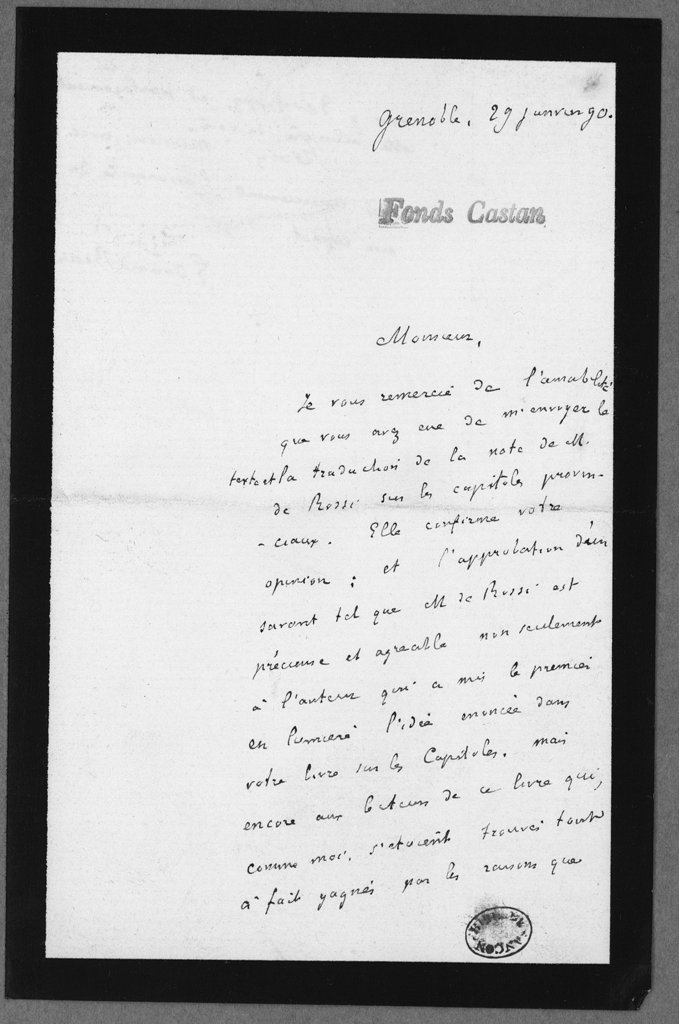 Grenoble, 29 janvier 90.
Fonds Castan
Monsieur,
Je vous remercie de l'amabilité
que vous avez eue de m'envoyer le
texte et la traduction de la note de M.
de Rossi sur les capitoles provin-
-ciaux. Elle confirme votre
opinion ; et l'approbation d'un
savant tel que M de Rossi est
précieuse et agreable non seulement
à l'auteur qui a mis le premier
en lumiere l'idée enoncée dans
votre livre sur les Capitoles, mais
encore aux lecteurs de ce livre qui,
comme moi, s'etaient trouvés tout
à fait gagnés par les raisons que